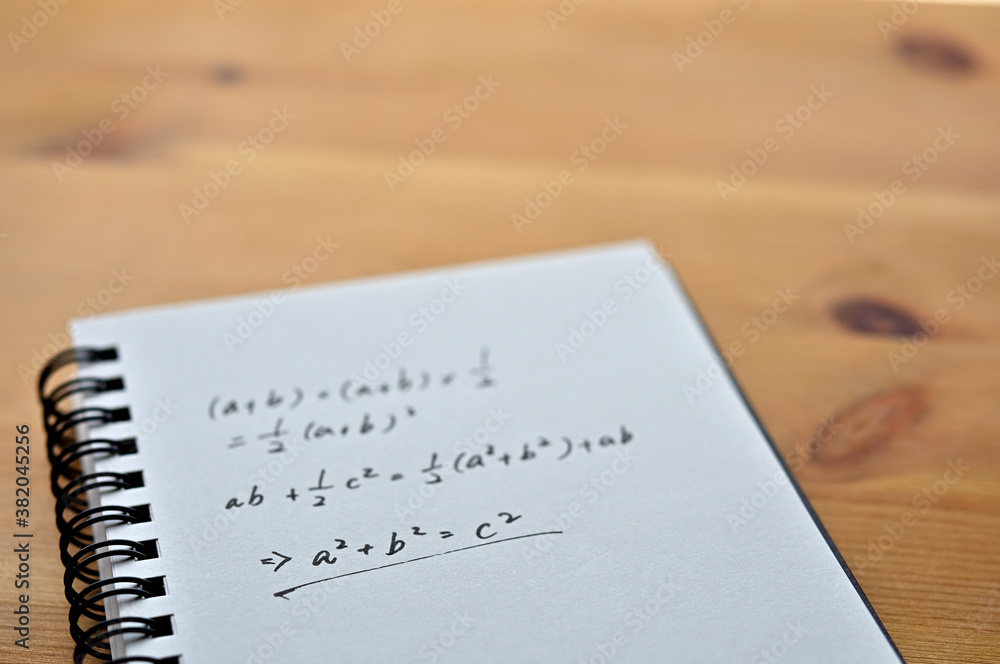 (a+b) × (a+b) × 1/2
= 1/2 (a+b)²
ab + 1/2 c² = 1/2 (a²+b²)+ab
=> a²+b² = c²
Adobe Stock | #382045256
Adobe Stock